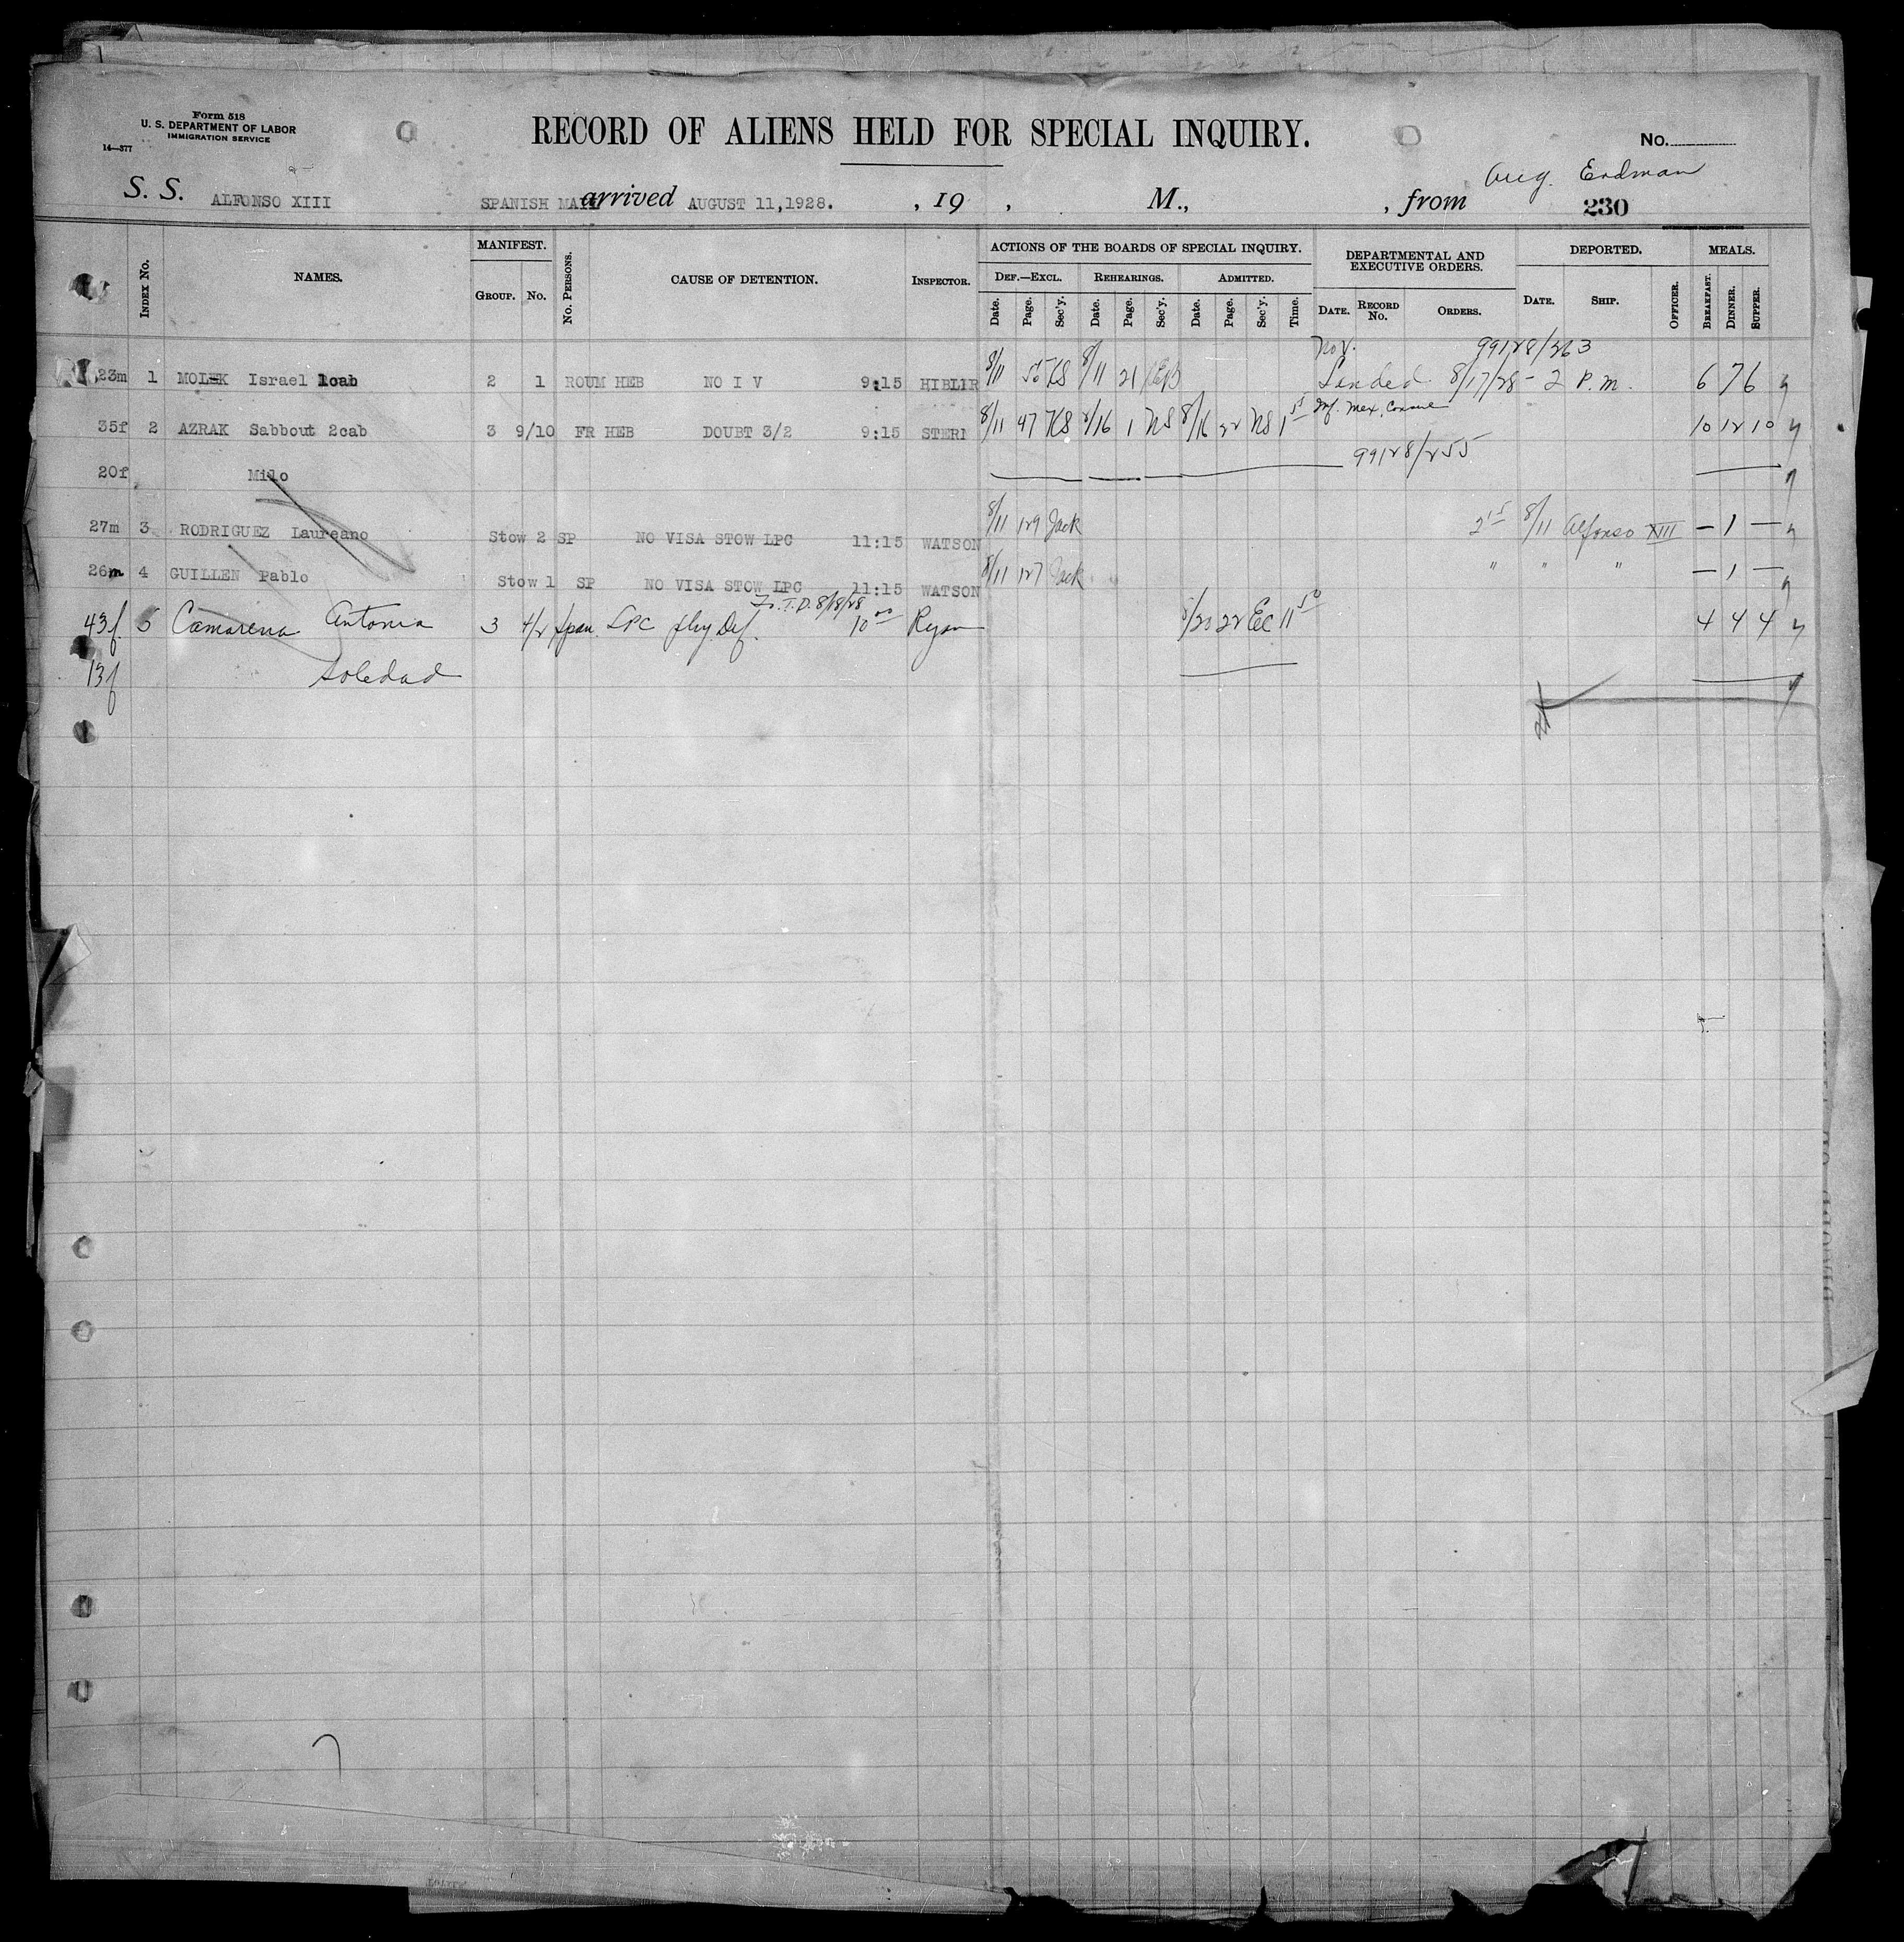 Form 518
U. S. DEPARTMENT OF LABOR
IMMIGRATION SERVICE
14—377
RECORD OF ALIENS HELD FOR SPECIAL INQUIRY.
No.
Aug. Erdman
S. S. ALFONSO XIII SPANISH MAIL arrived AUGUST 11,1928. , 19 , M., , from 230
INDEX No. NAMES. MANIFEST. GROUP. No. No. PERSONS. CAUSE OF DETENTION. INSPECTOR. ACTIONS OF THE BOARDS OF SPECIAL INQUIRY. DEF.—EXCL. REHEARINGS. ADMITTED. Date. Page. Sec'y. Date. Page. Sec'y. Date. Page. Sec'y. Time. DEPARTMENTAL AND EXECUTIVE ORDERS. DATE. RECORD No. ORDERS. DEPORTED. DATE. SHIP. OFFICER. MEALS. BREAKFAST. DINNER. SUPPER.
99128/263
23m 1 Israel 1cab 2 1 ROUM HEB NO I V 9:15 8/11 KS 8/11 21 Landed 8/17/28 - 2 P.m. 6 7 6
35f 2 AZRAK Sabbout 2cab 3 9/10 FR HEB DOUBT 3/2 9:15 STERN 8/11 47 KS 8/16 1 NS 8/16 22 NS 10 12 10
99128/255
20f Milo
27m 3 RODRIGUEZ Laureano Stow 2 SP NO VISA STOW LPC 11:15 WATSON 8/11 129 Jack 8/11 Alfonso XIII — 1 —
26m 4 GUILLEN Pablo Stow 1 SP NO VISA STOW LPC 11:15 WATSON 8/11 127 Jack " " " — 1 —
T.D. 8/18/28
43f 5 Camarena Antonia 3 4/2 Span. LPC phy. Def. 10 00 Ryan 8/20 22 EC 11 50 4 4 4
13f Soledad